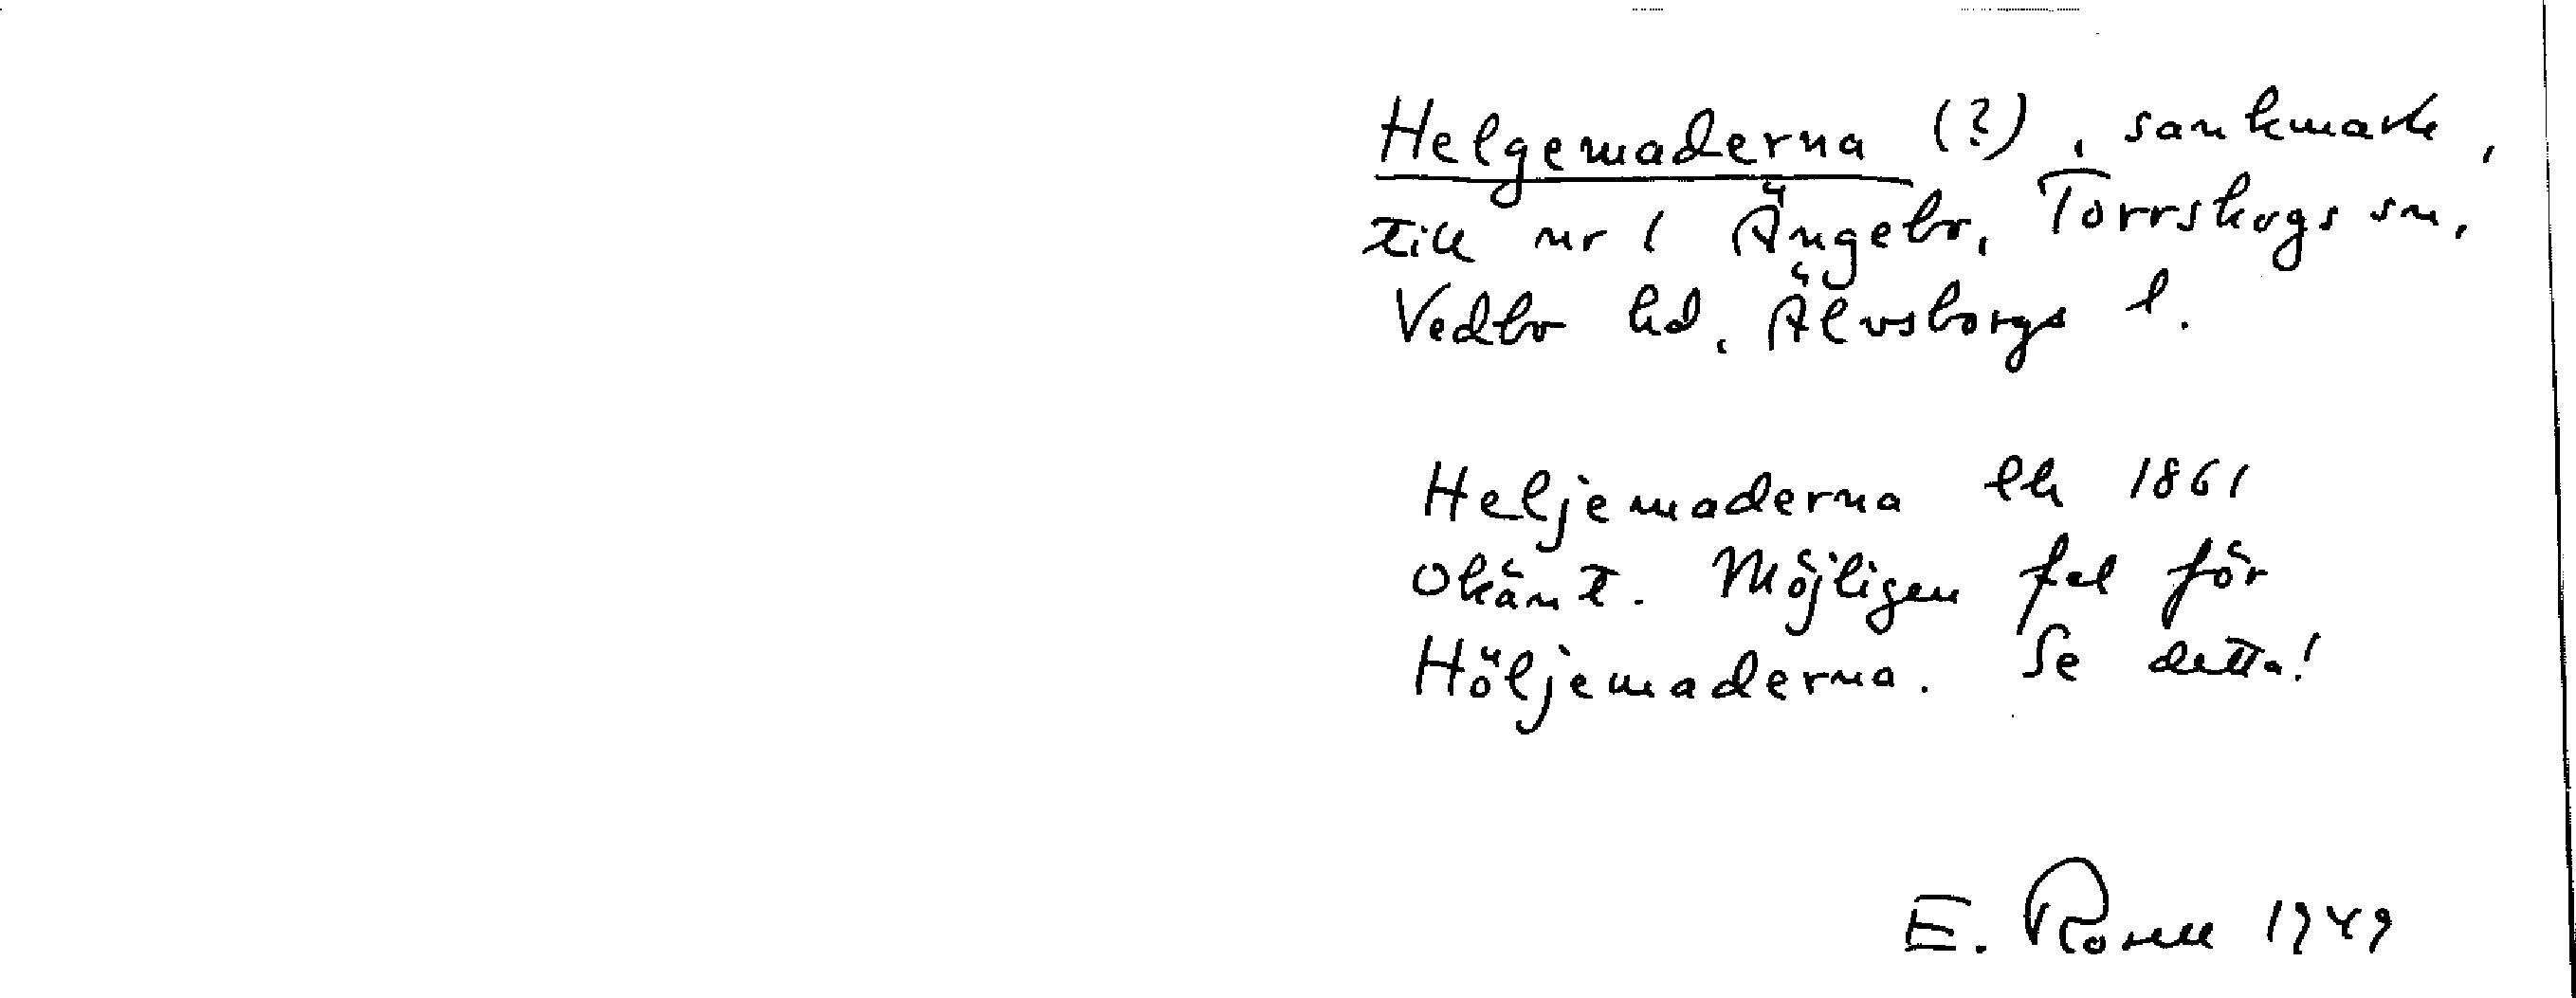 Helgemaderna (?), sankmark,
till nr 1 Ängebo, Torrskogs sn,
Vedbo hd, Älvsborgs l.
Heljemaderna lh 1861
Okänt. Möjligen fel för
Höljemaderna. Se detta!
E. Rosell 1949